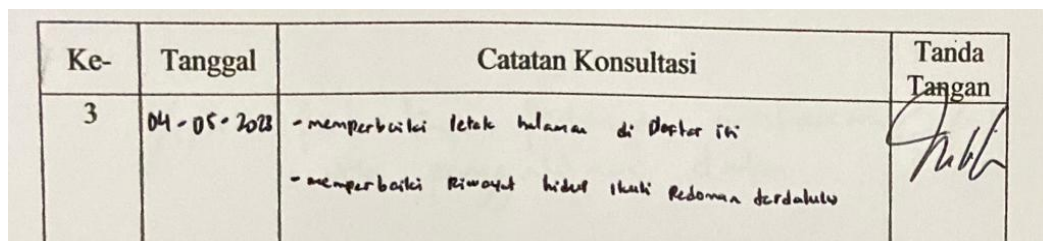 Ke-
Tanggal
Catatan Konsultasi
Tanda
Tangan
3
04-05-2023
- memperbaiki letak halaman di Daftar isi
- memperbaiki Riwayat hidup Ikuti Pedoman terdahulu